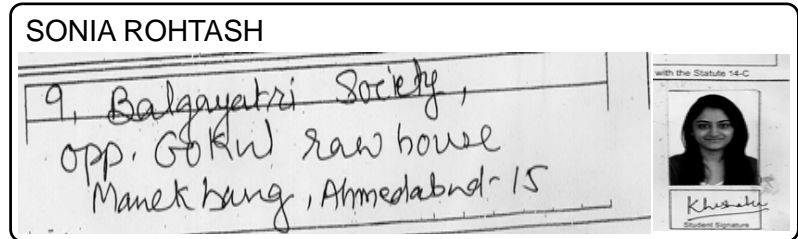 SONIA ROHTASH
9, Balgayatri Society,
opp. Gokul raw house
Manekbaug, Ahmedabad-15
with the Statute 14-C
Student Signature